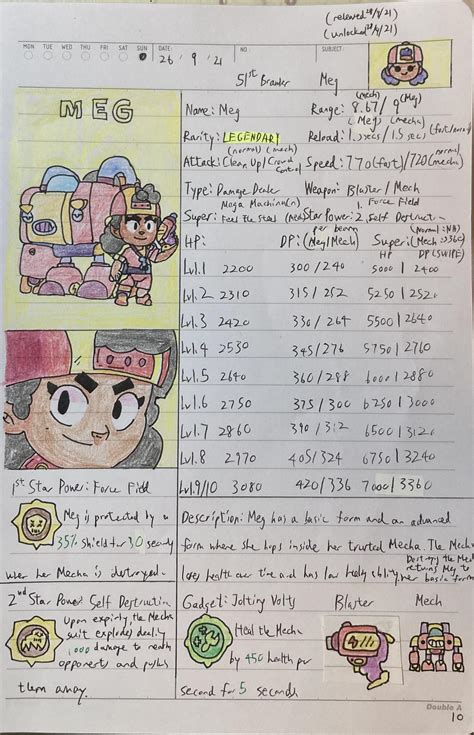 (released 28/9/21)
(unlocked 28/9/21)
MON TUE WED THU FRI SAT SUN DATE: 26 9 21 NO. SUBJECT:
51st Brawler Meg
MEG
Name: Meg Range: 8.67 (mech) / 9 (Meg)
Rarity: LEGENDARY Reload: (Meg) (mecha) / 1.5 secs
Attack: Clean Up (normal) / Crowd Control (mech) Speed: 770 (fast) / 720 (normal)
Type: Damage Dealer Weapon: Blaster / Mech
Super: Mega Machina (n) Star Power: 1. Force Field 2. Self Destruction
HP: DP: per beam (Meg/Mech) Super: HP DP (SWIPE)
Lvl.1 2200 300/240 5000 | 2400
Lvl.2 2310 315/252 5250 | 2520
Lvl.3 2420 330/264 5500 | 2640
Lvl.4 2530 345/276 5750 | 2760
Lvl.5 2640 360/288 6000 | 2880
Lvl.6 2750 375/300 6250 | 3000
Lvl.7 2860 390/312 6500 | 3120
Lvl.8 2970 405/324 6750 | 3240
Lvl.9/10 3080 420/336 7000 | 3360
1st Star Power: Force Field
Meg is protected by a
35% shield for 30 seconds
when her Mecha is destroyed.
Description: Meg has a basic form and an advanced
form where she hops inside her trusted Mecha. The Mecha
loses health over time and has low healing ability. Destroying the Mech returns Meg to her basic form
2nd Star Power: Self Destruction
Upon expiry, the Mecha
suit explodes dealing
1000 damage to nearby
opponents and pushes
them away.
Gadget: Jolting Volts Blaster Mech
Heal the Mecha
by 450 health per
second for 5 seconds
Double A
10